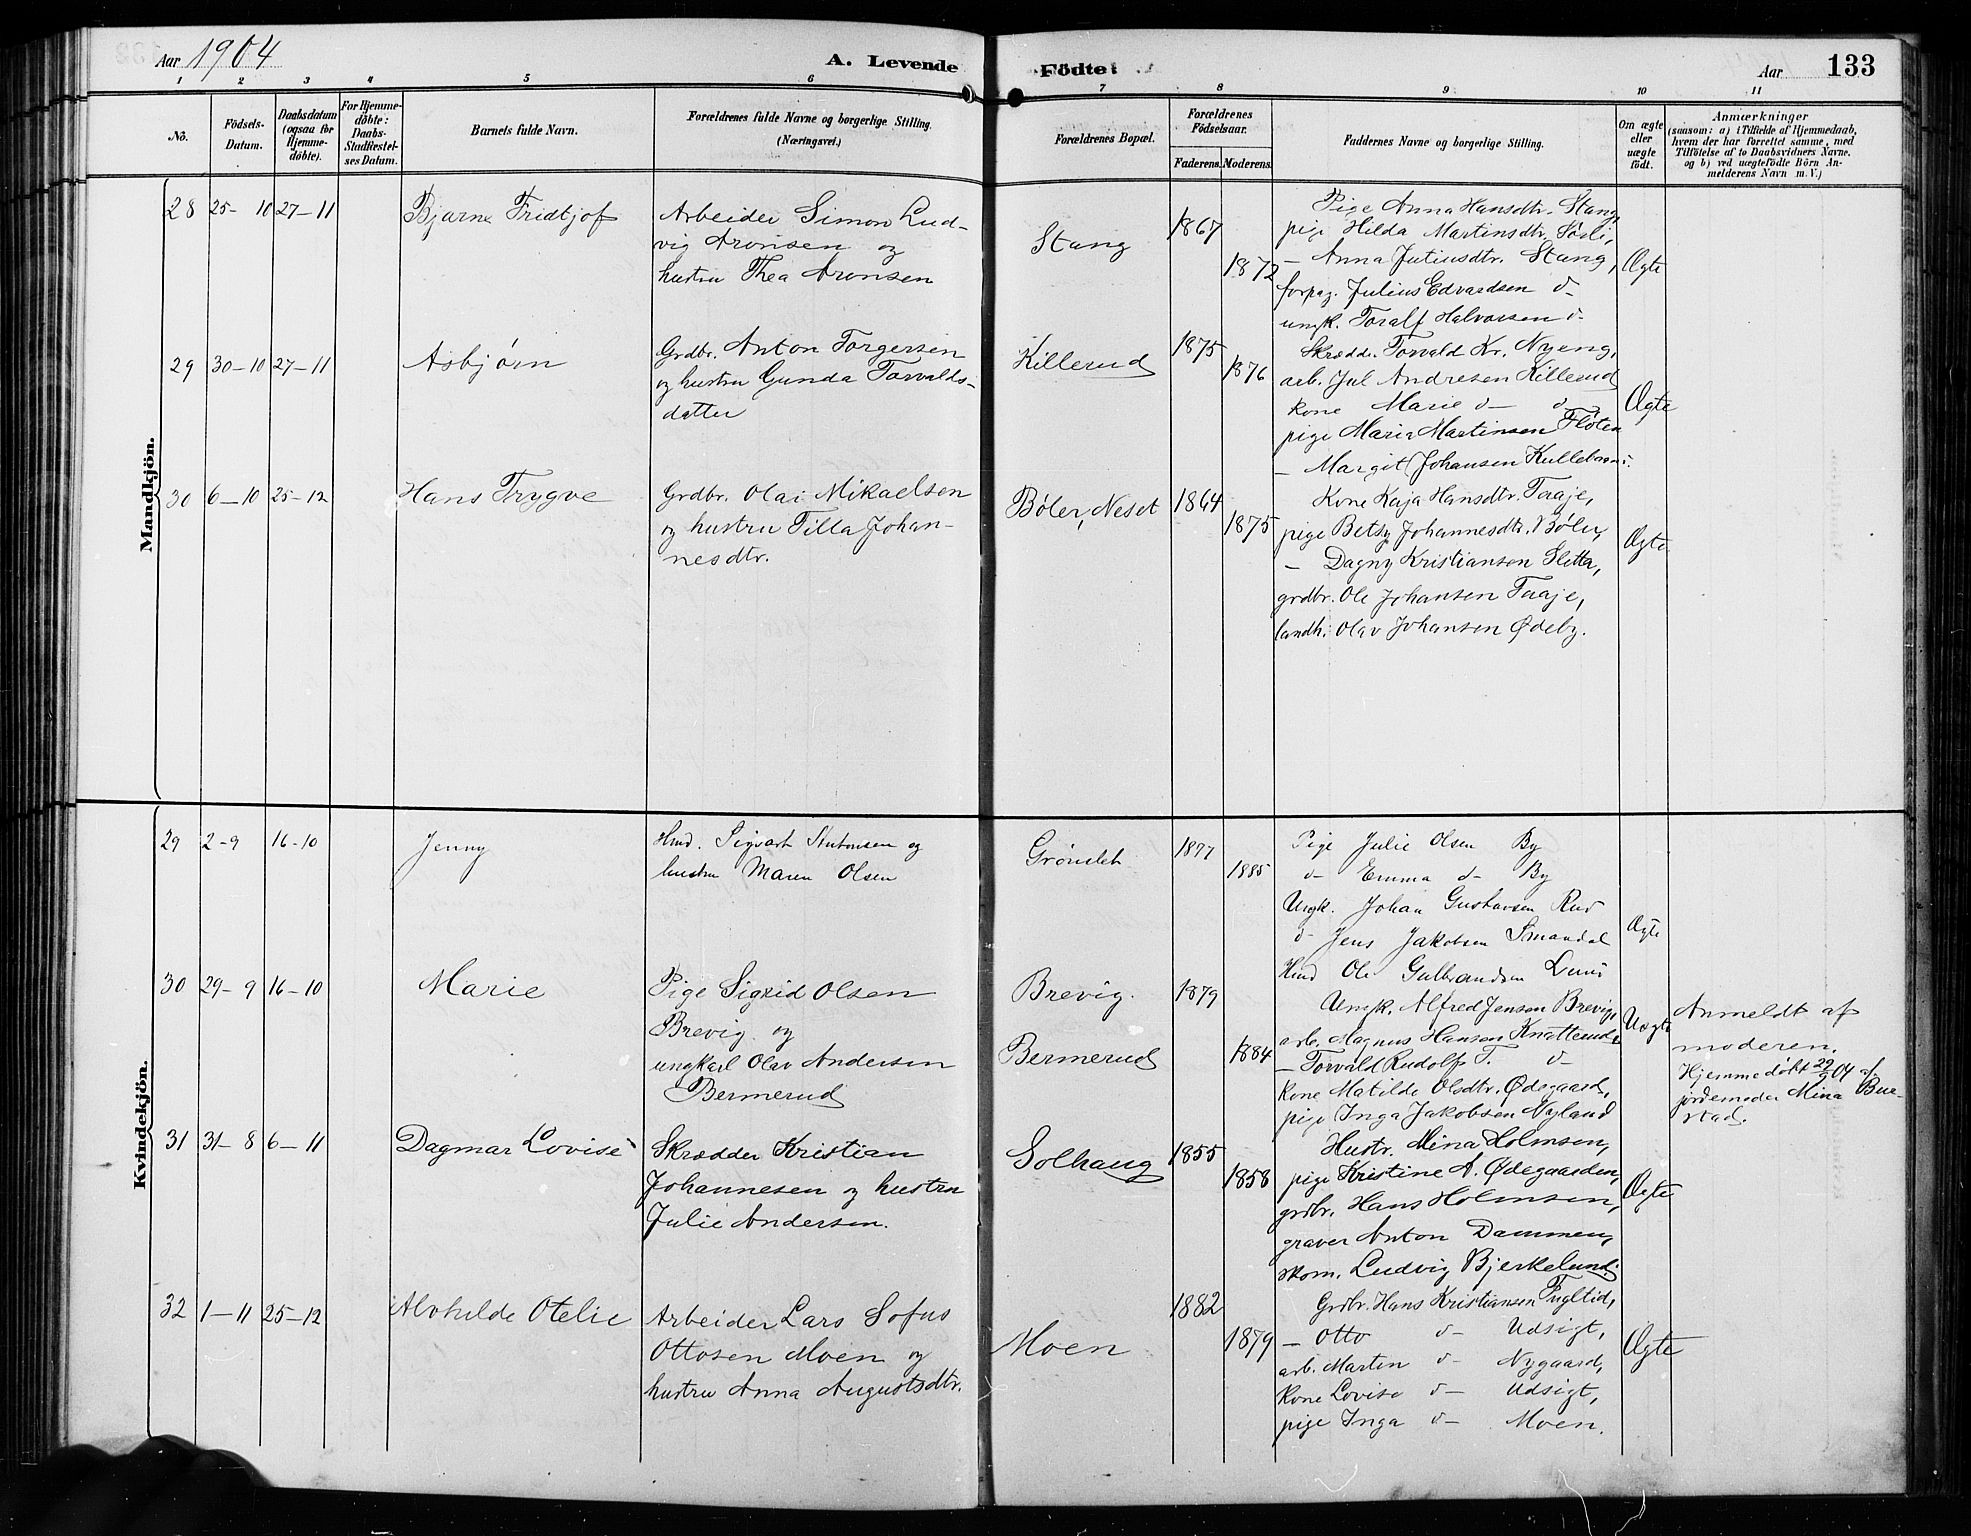 Aar 1904
A. Levende Födte.
Aar 133
1 2 3 4 5 6 7 8 9 10 11
No.
Födsels-
Datum.
Daabsdatum
(ogsaa for
Hjemme-
döbte).
For Hjemme-
döbte:
Daabs-
Stadfæstel-
ses Datum.
Barnets fulde Navn.
Forældrenes fulde Navne og borgerlige Stilling.
(Næringsvei.)
Forældrenes Bopæl.
Forældrenes
Födselsaar.
Faderens. Moderens.
Faddernes Navne og borgerlige Stilling.
Om ægte
eller
uægte
födt.
Anmærkninger
(saasom: a) i Tilfælde af Hjemmedaab,
hvem der har forrettet samme, med
Tilföielse af to Daabsvidners Navne,
og b) ved uægtefödte Börn An-
melderens Navn m. V.)
Mandkjön.
28 25-10 27-11
Bjarne Fridtjof
Arbeider Simon Lud-
vig Aronsen og
hustru Thea Aronsen
Stang
1867
1872
Pige Anna Hansdtr. Stang,
pige Hilda Martinsdtr.
– Anna Julinsdtr. Stang,
forpag. Julius Edvardsen d–
ungk. Toralf Halvorsen d–
Ægte
29 30-10 27-11
Asbjörn
Grdbr. Anton Torgersen
og hustru Gunda Torvalds-
datter
Killerud
1875
1876
Skrædder Torvald Kr. Nyeng,
arb. Jul Andresen Killerud
kone Marie d– d–,
pige Marie Martinsen Fløten
– Margit Johansen
Ægte
30 6-10 25-12
Hans Trygve
Grdbr. Olai Mikaelsen
og hustru Tilla Johan-
nesdtr.
Bøler, Neset
1864
1875
Kone Kaja Hansdtr. Taaje,
pige Betsy Johannesdtr. Bøler,
– Dagny Kristiansen Sletta,
grdbr. Ole Johansen Taaje,
landh. Olav Johansen Ødeby.
Ægte
Kvindekjön.
29 2-9 16-10
Jenny
Hmd. Sigvart og
hustru Maren Olsen
1877
1885
Pige Julie Olsen By
d– Emma d– By
Ungk. Johan Gustavsen Rud
d– Jens Jakobsen Smaadal
Hmd Ole Gulbrandsen
Ægte
30 29-9 16-10
Marie
Pige Sigrid Olsen
Brevig og
ungkarl Olav Andersen
Bermerud
Brevig.
Bermerud
1879
1884
Ungk. Alfred Jensen Brevig,
arb. Magnus Hansen Knatterud,
– Torvald Rudolf T. d–
kone Matilde Olsdtr. Ødegaard,
pige Inga Jakobsen Nyland
Uægte
Anmeldt af
moderen.
Hjemmedøbt 29/9 04 af
jordemoder Mina Bue-
stad.
31 31-8 6-11
Dagmar Lovise
Skrædder Kristian
Johannesen og hustru
Julie Andersen.
Solhaug
1855
1858
Hustr. Mina Holmsen,
pige Kristine A. Ødegaarden,
grdbr. Hans Holmsen,
graver Anton Dammen,
skom. Ludvig Bjerkelund.
Ægte
32 1-11 25-12
Alvhilde Otelie
Arbeider Lars Sofus
Ottosen Moen og
hustru Anna Augustsdtr.
Moen
1882
1879
Grdbr. Hans Kristiansen
– Otto d– Udsigt,
arb. Martin d– Nygaard,
kone Lovise d– Udsigt,
pige Inga d– Moen.
Ægte